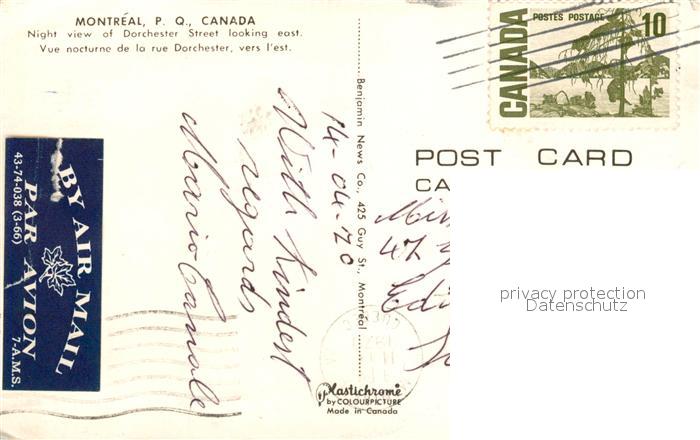 MONTRÉAL, P. Q., CANADA
Night view of Dorchester Street looking east.
Vue nocturne de la rue Dorchester, vers l'est.
14-04-70
With Kindest
regards
Mario Canale
BY AIR MAIL
PAR AVION
43-74-038 (3-66)
7-A.M.S.
Benjamin News Co., 425 Guy St., Montréal
Plastichrome
by COLOURPICTURE
Made in Canada
CANADA
POSTES POSTAGE
10
POST CARD
CA
47
Edi
privacy protection
Datenschutz